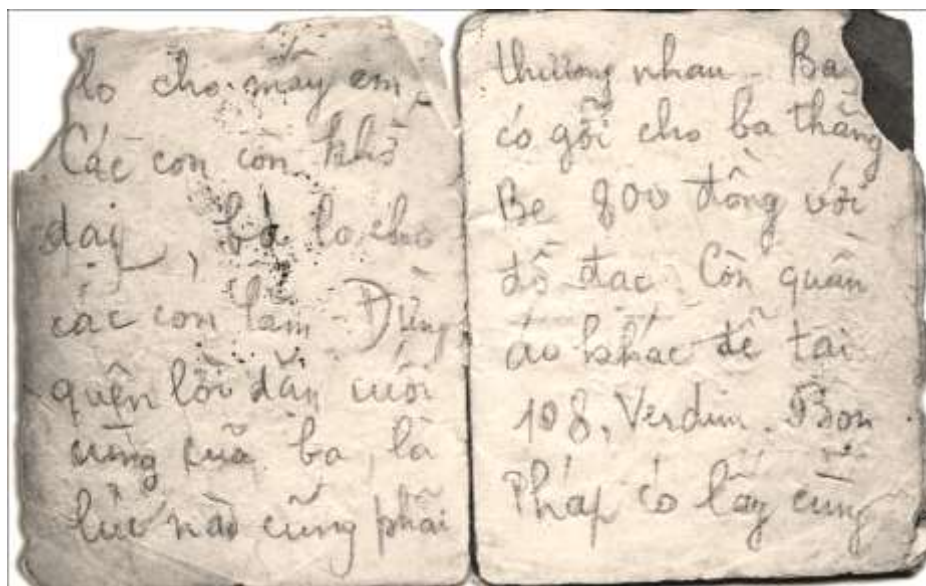 lo cho mấy em,
Các con còn khờ
dại, ba lo cho
các con lắm - Đừng
quên lời dặn cuối
cùng cuả ba, là
lúc nào cũng phải
thương nhau - Ba
có gởi cho ba thằng
Be 800 đồng với
đồ đạc. Còn quần
áo khác để tại
108, Verdun. Bọn
Pháp có lấy cũng